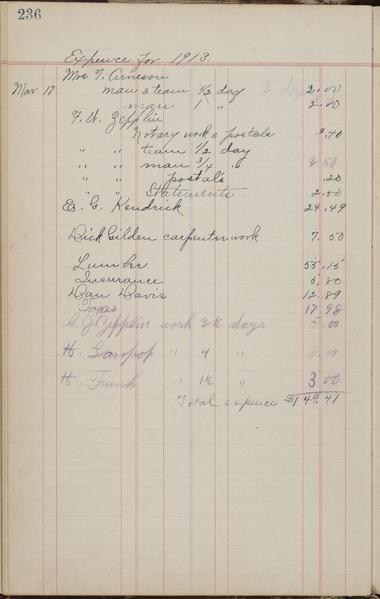 236
Expence for 1913.
Mrs T. Arneson
Mar 17 man & team 1/2 day 2 days 2.00
man 1 " 2.00
F. W. Zepplin
Notary work & postals 2.40
" " team 1/2 day
" " man 3/4 " 2 50
" " postals .20
" " Statements 2.50
E. G. Kendrick 24.49
Dick Gilden carpenter work 7.50
Lumber 55.15
Insurance 5.80
Dan Davis 12.89
Taxes 17.98
G. J. Zepplin work 2 1/2 days 5.00
H. " 4 "
H. Frunk " 1 1/2 " 3 00
Total expence $149.41